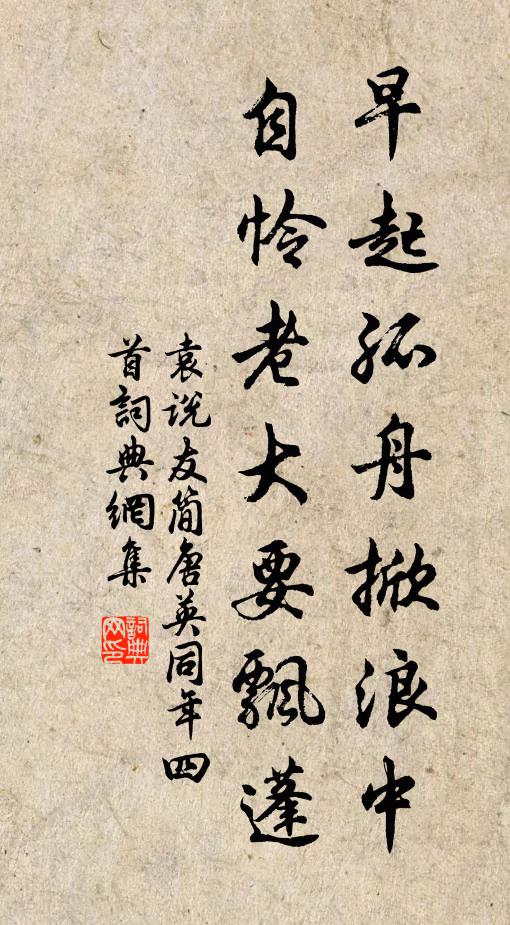 早起孤舟掀浪中
自怜老大要飄蓬
袁说友简唐英同年四
首詞典網集
詞典
网印